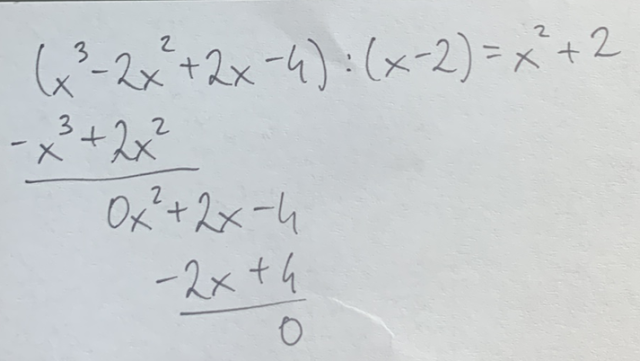 (x³-2x²+2x-4):(x-2)=x²+2
-x³+2x²
0x²+2x-4
-2x+4
0